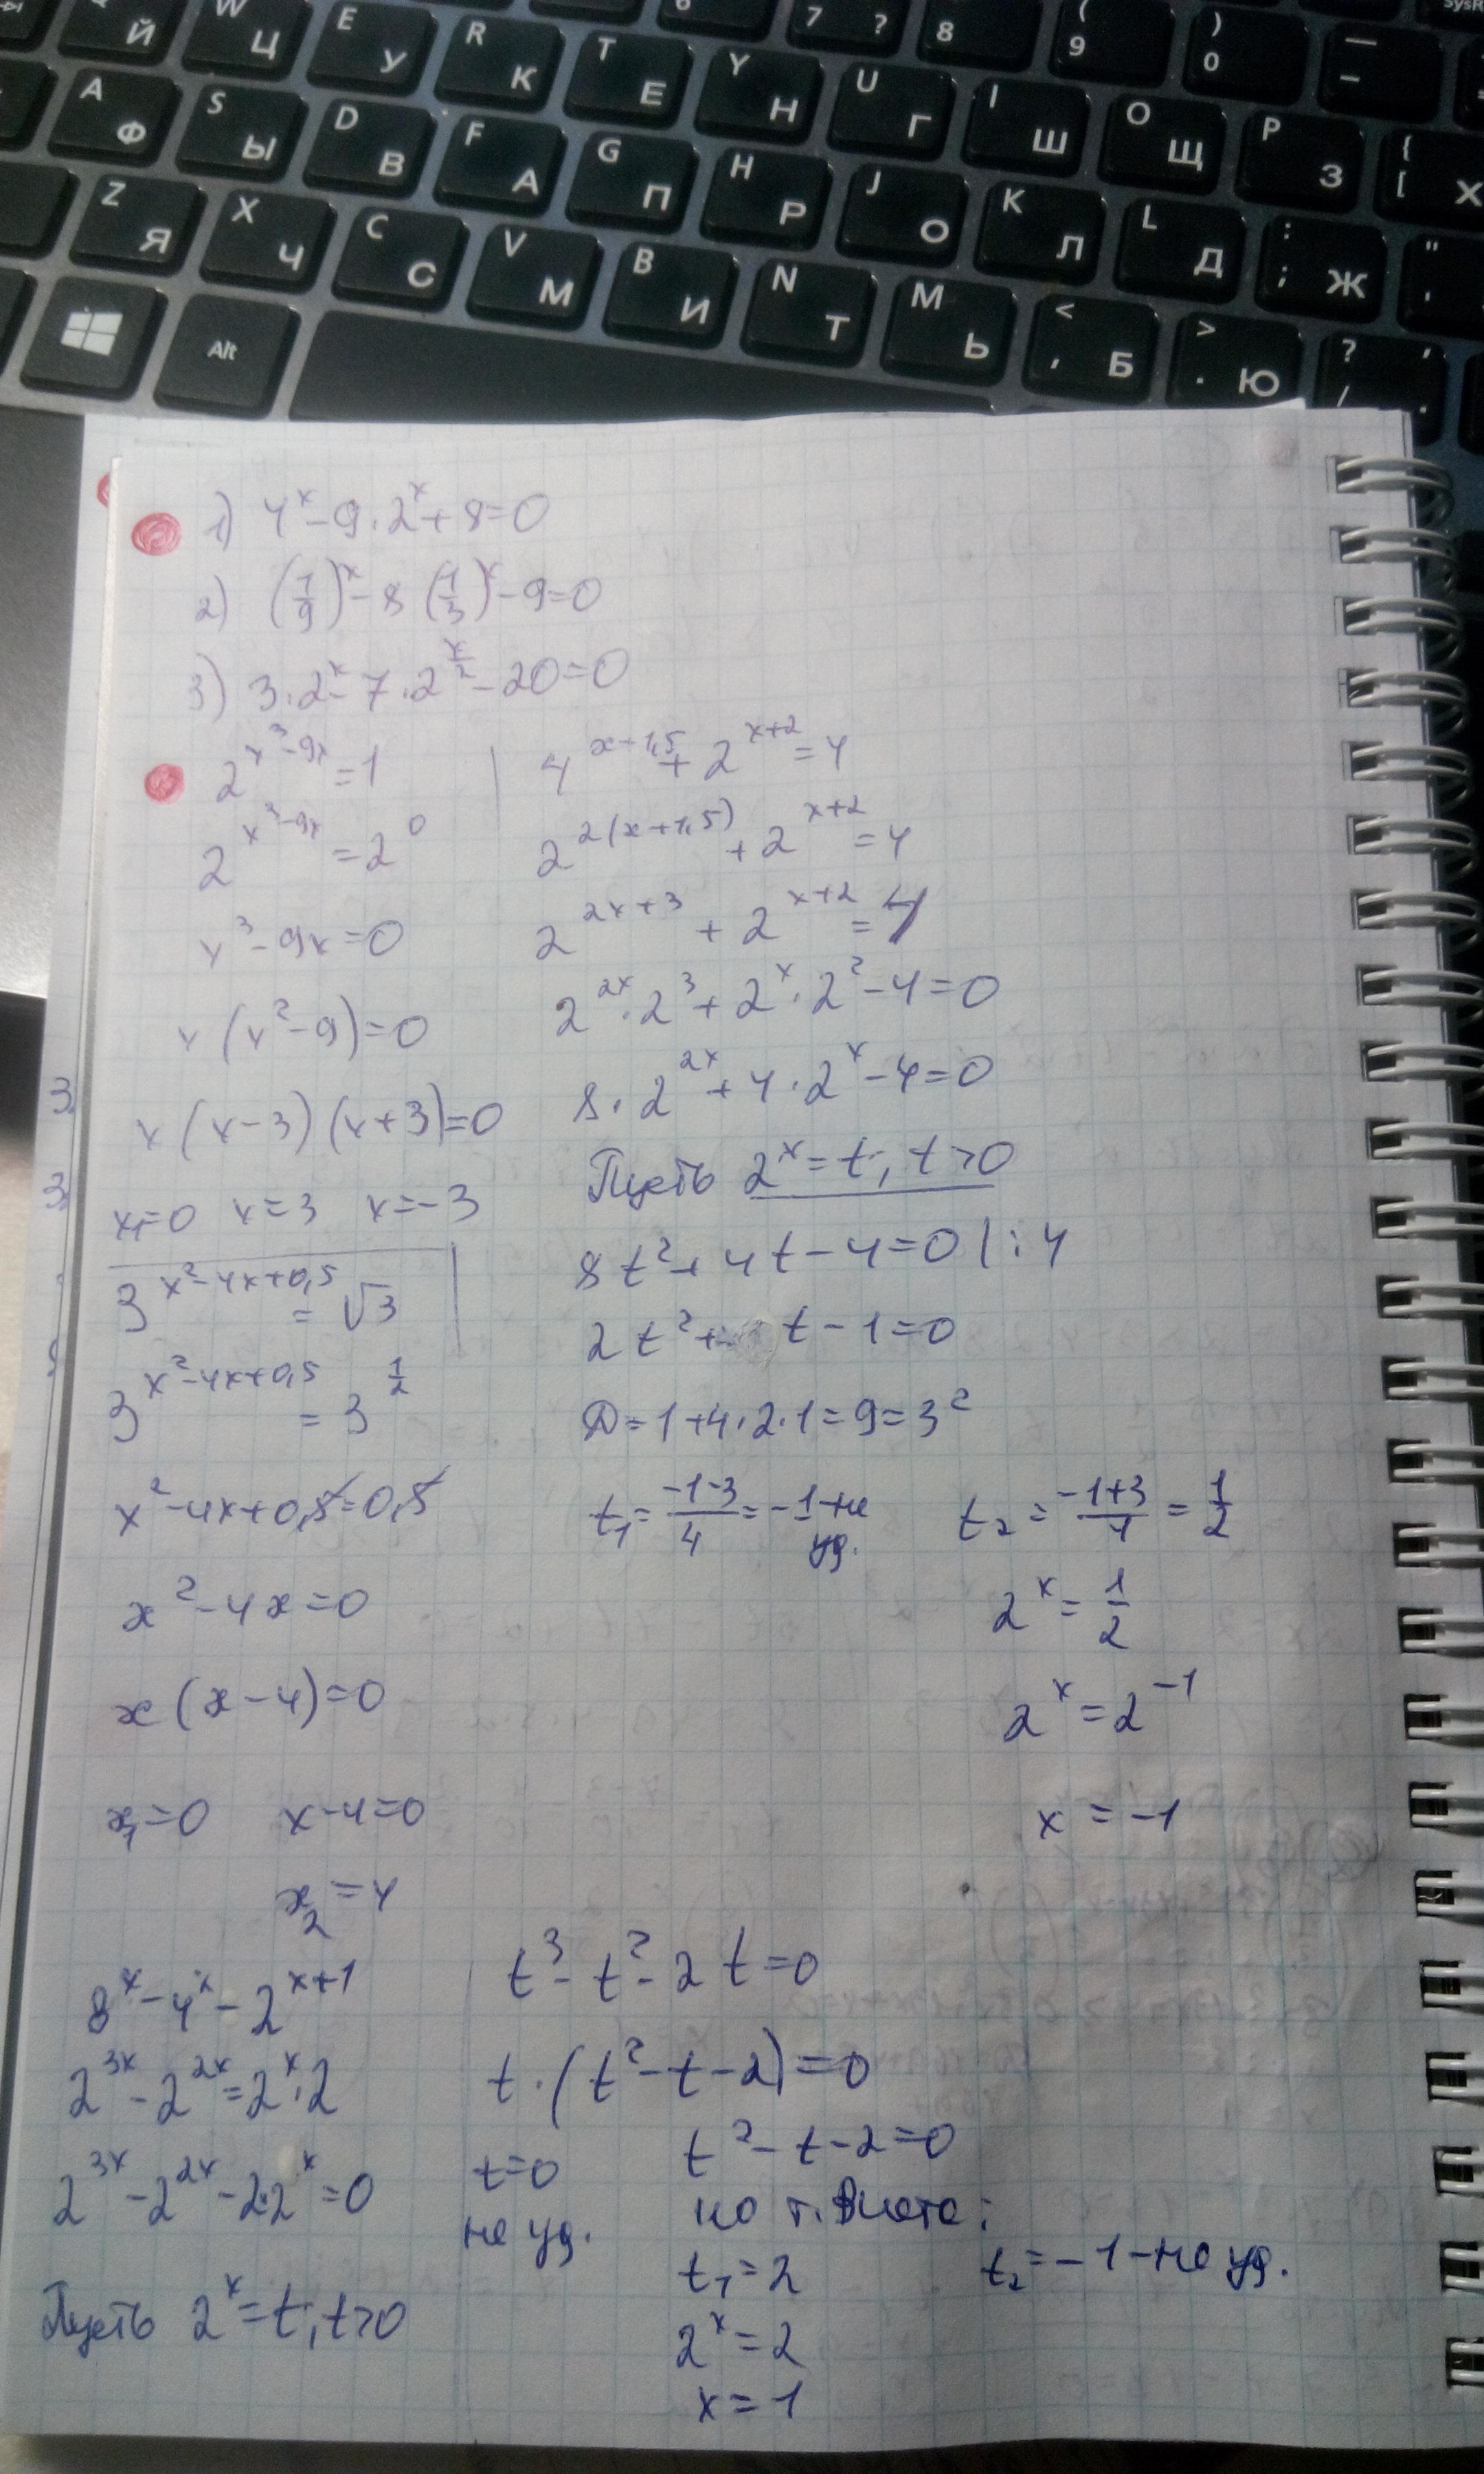 W Й Ц E У R К T Е Y Н U Г 7 ? 8 ( 9 ) 0
A Ф S Ы D В F А G П H Р J О I Ш O Щ P З { [ Х
Z Я X Ч C С V М B И N Т M Ь K Л L Д : ; Ж " '
Alt < , Б > . Ю ? /
1) 4^x - 9·2^x + 8 = 0
2) (1/9)^x - 8 (1/3)^x - 9 = 0
3) 3·2^x - 7·2^(x/2) - 20 = 0
2^(x³-9x) = 1
2^(x³-9x) = 2^0
x³ - 9x = 0
x (x² - 9) = 0
x (x-3) (x+3) = 0
x₁=0 x=3 x=-3
3^(x²-4x+0,5) = √3
3^(x²-4x+0,5) = 3^(1/2)
x² - 4x + 0,5 = 0,5
x² - 4x = 0
x (x - 4) = 0
x₁=0 x-4=0
x₂=4
4^(x+1,5) + 2^(x+2) = 4
2^(2(x+1,5)) + 2^(x+2) = 4
2^(2x+3) + 2^(x+2) = 4
2^(2x)·2³ + 2^x·2² - 4 = 0
8·2^(2x) + 4·2^x - 4 = 0
Пусть 2^x = t, t>0
8t² + 4t - 4 = 0 | : 4
2t² + t - 1 = 0
D = 1+4·2·1 = 9 = 3²
t₁ = (-1-3)/4 = -1 - не уд. t₂ = (-1+3)/4 = 1/2
2^x = 1/2
2^x = 2^(-1)
x = -1
8^x - 4^x - 2^(x+1)
2^(3x) - 2^(2x) = 2^x·2
2^(3x) - 2^(2x) - 2·2^x = 0
Пусть 2^x = t, t>0
t³ - t² - 2t = 0
t·(t² - t - 2) = 0
t=0 t² - t - 2 = 0
не уд. по т. Виета:
t₁=2 t₂ = -1 - не уд.
2^x = 2
x = 1